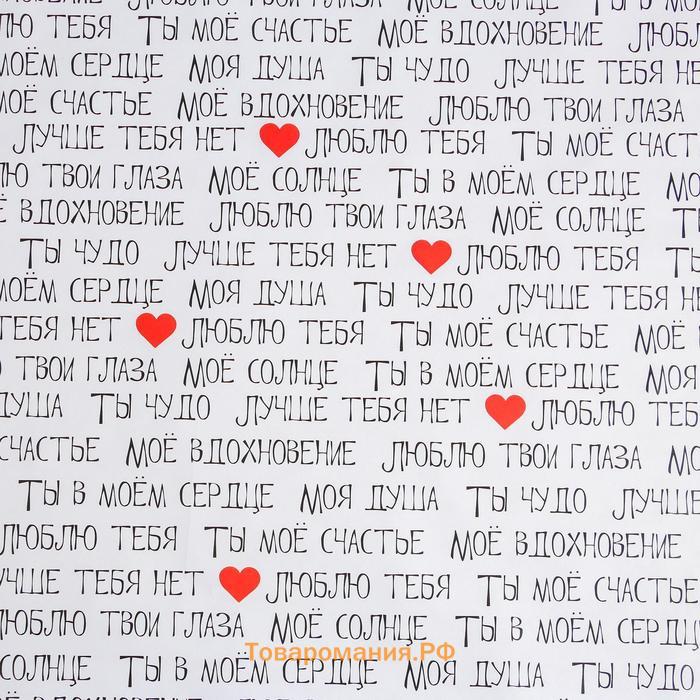 ЛЮБЛЮ ТВОИ ГЛАЗА МОЁ СОЛНЦЕ ТЫ В МО
Ю ТЕБЯ ТЫ МОЁ СЧАСТЬЕ МОЁ ВДОХНОВЕНИЕ ЛЮБЛ
МОЁМ СЕРДЦЕ МОЯ ДУША ТЫ ЧУДО ЛУЧШЕ ТЕБЯ НЕ
МОЁ СЧАСТЬЕ МОЁ ВДОХНОВЕНИЕ ЛЮБЛЮ ТВОИ ГЛАЗА
ЛУЧШЕ ТЕБЯ НЕТ ЛЮБЛЮ ТЕБЯ ТЫ МОЁ СЧАСТ
Ю ТВОИ ГЛАЗА МОЁ СОЛНЦЕ ТЫ В МОЁМ СЕРДЦЕ МО
Ё ВДОХНОВЕНИЕ ЛЮБЛЮ ТВОИ ГЛАЗА МОЁ СОЛНЦЕ Т
ТЫ ЧУДО ЛУЧШЕ ТЕБЯ НЕТ ЛЮБЛЮ ТЕБЯ ТЫ
МОЁМ СЕРДЦЕ МОЯ ДУША ТЫ ЧУДО ЛУЧШЕ ТЕБЯ Н
ТЕБЯ НЕТ ЛЮБЛЮ ТЕБЯ ТЫ МОЁ СЧАСТЬЕ МОЁ
ТВОИ ГЛАЗА МОЁ СОЛНЦЕ ТЫ В МОЁМ СЕРДЦЕ МОЯ
ДУША ТЫ ЧУДО ЛУЧШЕ ТЕБЯ НЕТ ЛЮБЛЮ ТЕБ
СЧАСТЬЕ МОЁ ВДОХНОВЕНИЕ ЛЮБЛЮ ТВОИ ГЛАЗА МО
ТЫ В МОЁМ СЕРДЦЕ МОЯ ДУША ТЫ ЧУДО ЛУЧШЕ
ЛЮБЛЮ ТЕБЯ ТЫ МОЁ СЧАСТЬЕ МОЁ ВДОХНОВЕНИЕ
УЧШЕ ТЕБЯ НЕТ ЛЮБЛЮ ТЕБЯ ТЫ МОЁ СЧАСТЬЕ
ЛЮБЛЮ ТВОИ ГЛАЗА МОЁ СОЛНЦЕ ТЫ В МОЁМ СЕРДЦ
Товаромания.РФ
СОЛНЦЕ ТЫ В МОЁМ СЕРДЦЕ МОЯ ДУША ТЫ ЧУДО